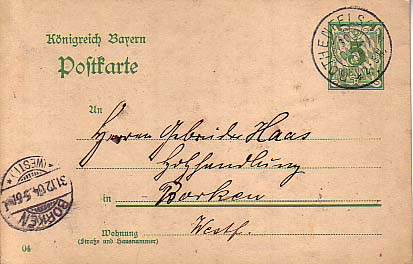 Königreich Bayern
Postkarte
ROTHENFELS
5
An
Herren Gebrüder Haas
Holzhandlung
in Borken
Westf.
Wohnung
(Straße und Hausnummer)
(WESTF.)
31.12.04.5-6N
BORKEN
04